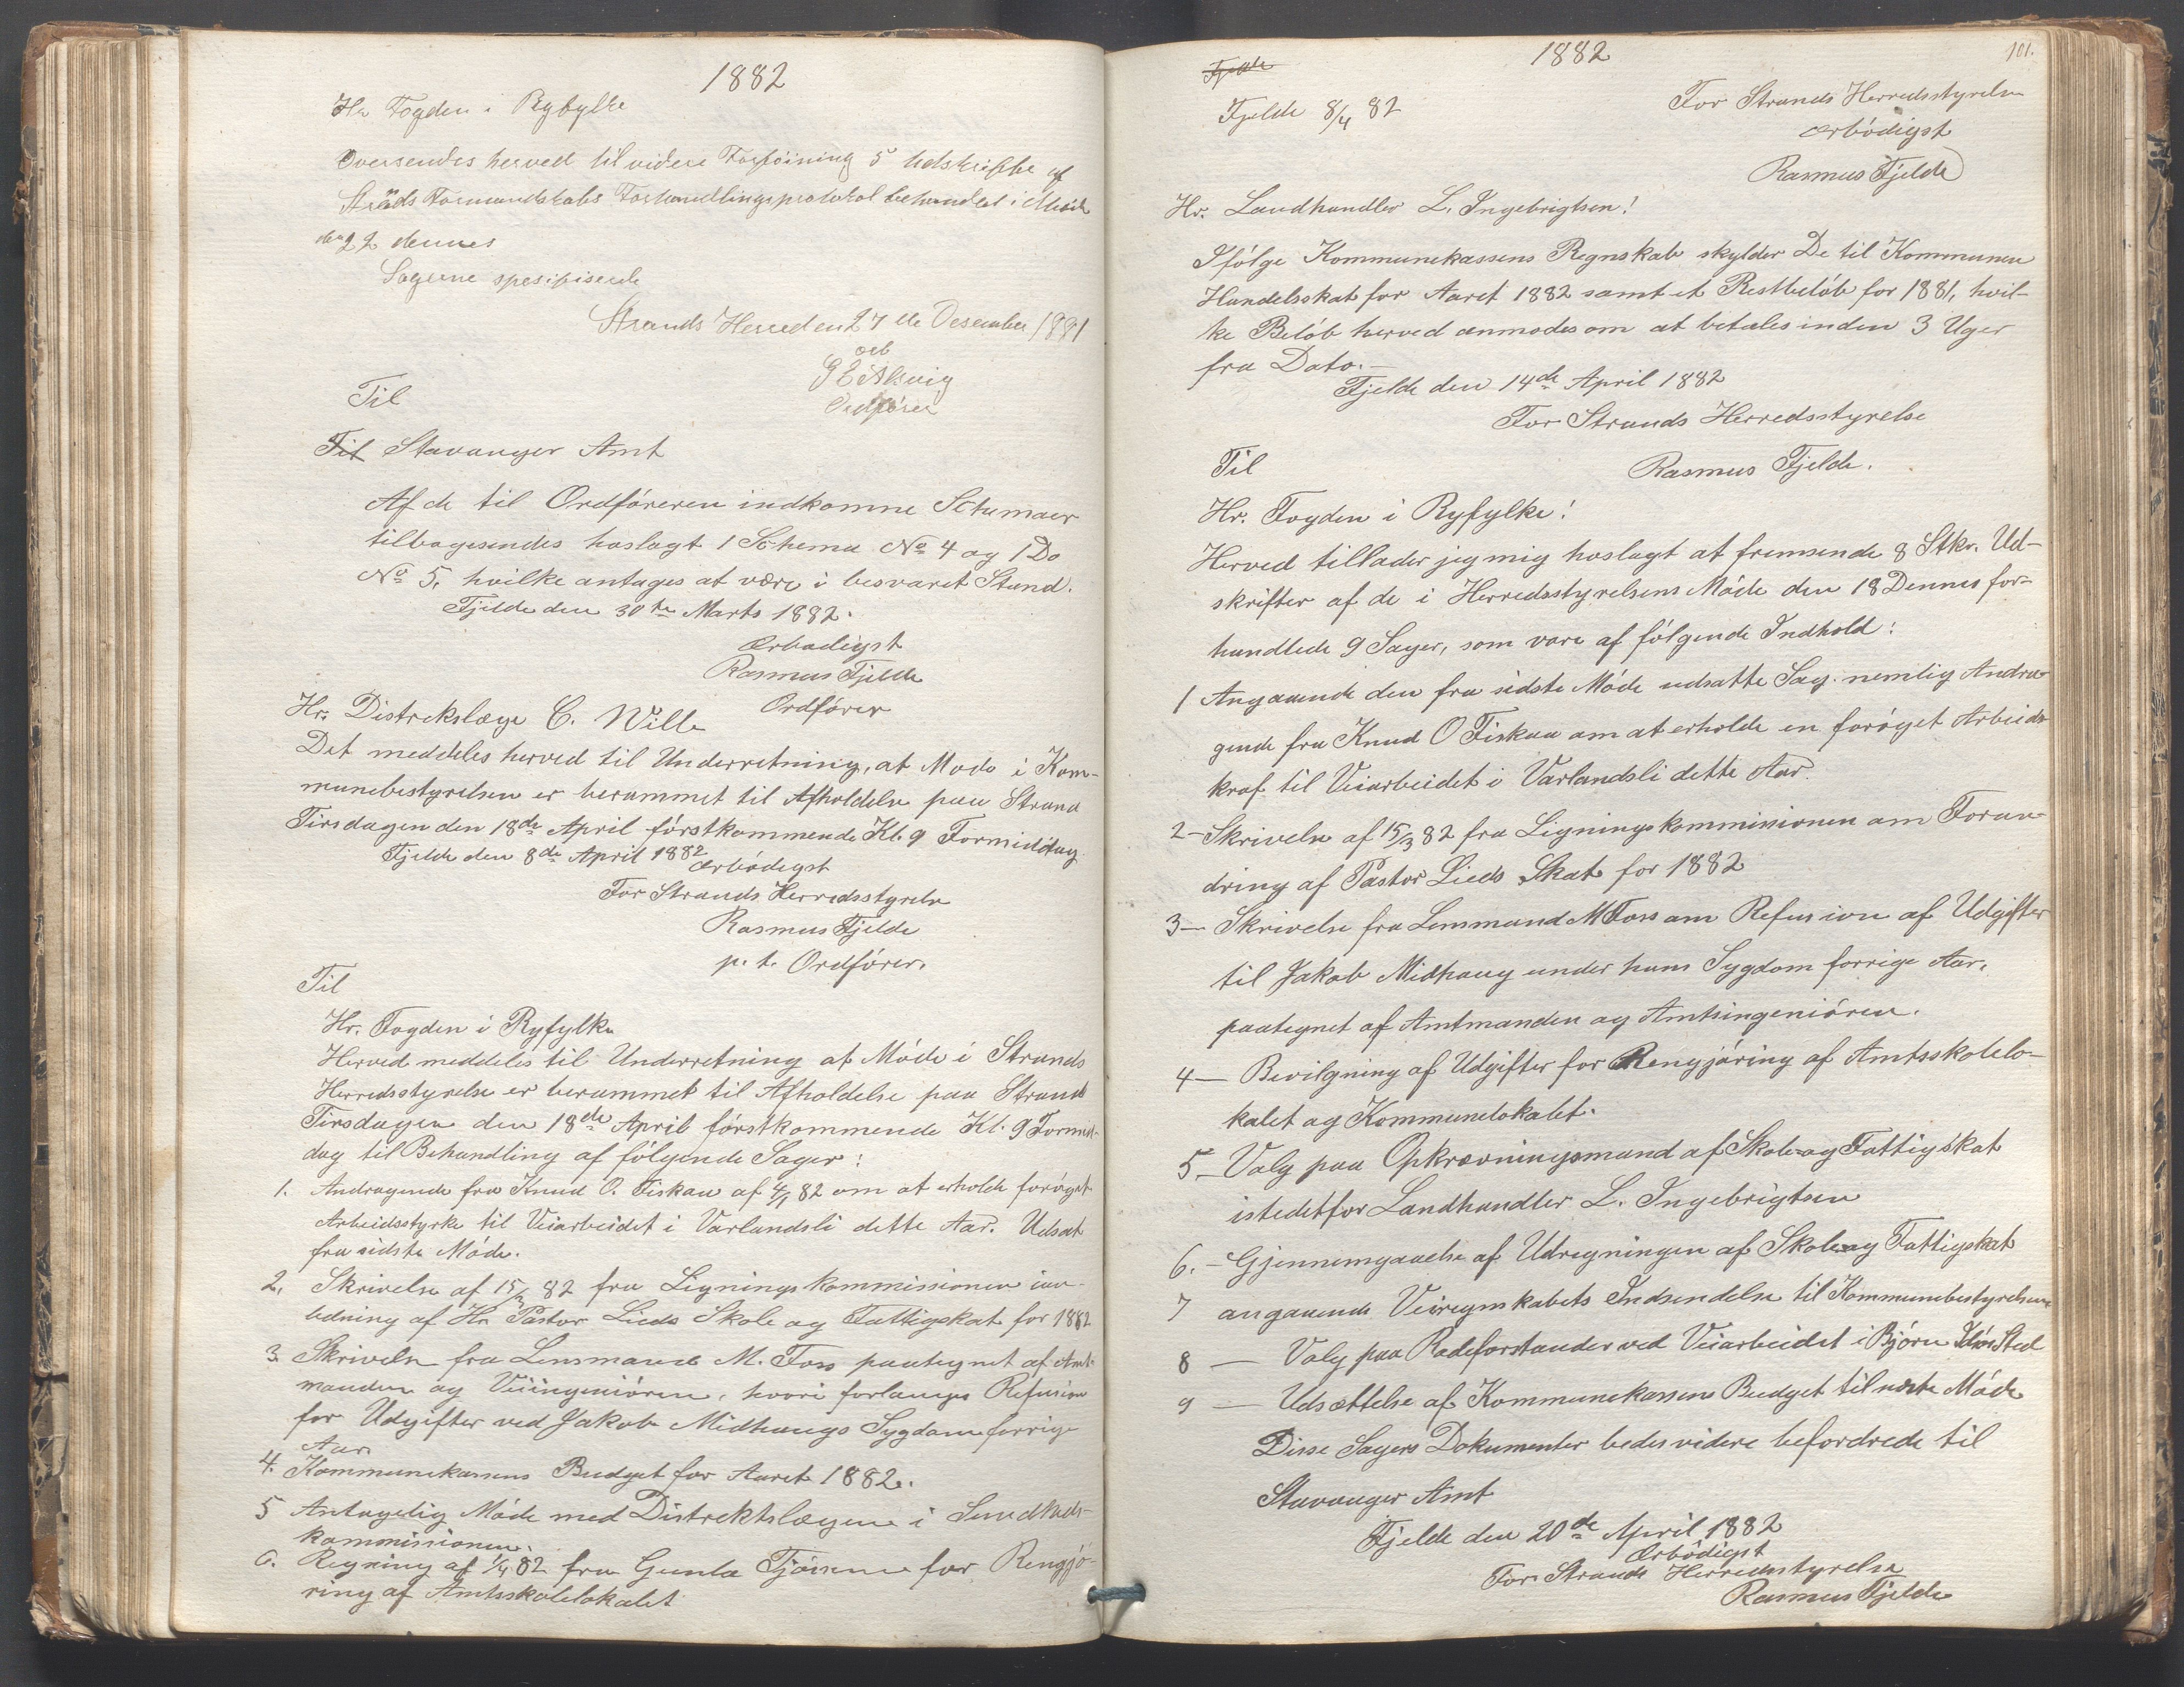 1882
Hr Fogden i Ryfylke
Oversendes herved til videre Forføining 5 Udskrifte af
Strands Formandskabs Forhandlingsprotokol behandlet i Møde
den 22 dennes
Sagerne spesifiserede
Strands Herred en 27 de Desember 1881
ærb
Ordfører
Til
Til Stavanger Amt
Af de til Ordføreren indkomne Schemaer
tilbagesendes hoslagt 1 Schema No 4 og 1 Do
No 5, hvilke antages at være i besvaret Stand.
Fjelde den 30te Marts 1882.
Ærbødigst
Rasmus Fjelde
Ordfører
Hr. Distrekslæge C. Wille
Det meddeles herved til Underretning, at Møde i Kom-
munebestyrelsen er berammet til Afholdelse paa Strand
Tirsdagen den 18de April førstkommende Kl. 9 Formiddag
Fjelde den 8de April 1882
Ærbødigst
For Strands Herredsstyrelse
Rasmus Fjelde
p. t. Ordfører.
Til
Hr. Fogden i Ryfylke
Herved meddeles til Underretning at Møde i Strands
Herredsstyrelse er berammet til Afholdelse paa Strand
Tirsdagen den 18de April førstkommende Kl. 9 Formid-
dag til Behandling af følgende Sager:
1. Andragende fra Knud O. Fiskaa af 4/1 82 om at erholde forøget
Arbeidsstyrke til Veiarbeidet i Varlandsli dette Aar. Udsat
fra sidste Møde.
2. Skrivelse af 15/3 82 fra Ligningskommissionen
af Hr. Pastor Lieds Skole og Fattigskat for 1882
3. Skrivelse fra Lensmand M. Foss paategnet af Amt-
manden og Veiingeniøren, hvori forlanges Refusion
for Udgifter ved Jakob Midhaugs Sygdom forrige
Aar.
4. Kommunekassens Budget for Aaret 1882.
5 Antagelig Møde med Distrektslægen i Sundheds-
kommissionen.
6. Regning af 1/4 82 fra Gunla for Rengjø-
ring af Amtsskolelokalet
Fjelde
1882
101.
Fjelde 8/4 82
For Strands Herredsstyrelse
Ærbødigst
Rasmus Fjelde
Hr. Landhandler L. Ingebrigtsen!
Ifølge Kommunekassens Regnskab skylder De til Kommunen
Handelsskat for Aaret 1882 samt et Restbeløb for 1881, hvil-
ke Beløb herved anmodes om at betales inden 3 Uger
fra Dato.-
Fjelde den 14de April 1882
For Strands Herredsstyrelse
Rasmus Fjelde.
Til
Hr. Fogden i Ryfylke!
Herved tillader jeg mig hoslagt at fremsende 8 Stkr. Ud-
skrifter af de i Herredsstyrelsens Møde den 18 Dennes for-
handlede 9 Sager, som vare af følgende Indhold:
1 Angaaende den fra sidste Møde udsatte Sag. nemlig Andra-
gende fra Knud O Fiskaa om at erholde en forøget Arbeids
kraf til Veiarbeidet i Varlandsli dette Aar.
2 - Skrivelse af 15/3 82 fra Ligningskommissionen om Foran-
dring af Pastor Lieds Skat for 1882
3 - Skrivelse fra Lensmand M Foss om Refusion af Udgifter
til Jakob Midhaug under hans Sygdom forrige Aar,
paategnet af Amtmanden og Amtsingeniøren.
4 - Bevilgning af Udgifter for Rengjøring af Amtsskolelo-
kalet og Kommunelokalet.
5 - Valg paa Opkrævningsmand af Skole- og Fattigskat
istedetfor Landhandler L. Ingebrigtsen
6. - Gjennemgaaelse af Udregningen af Skole- og Fattigskat
7 angaaende Veiregnskabets Indsendelse til Kommunebestyrelsen
8 - Valg paa Rodeforstander ved Veiarbeidet i Bjørn Sted
9 - Udsættelse af Kommunekassens Budget til næste Møde
Disse Sagers Dokumenter bedes videre befordrede til
Stavanger Amt
Fjelde den 20de April 1882
Ærbødigst
For Strands Herredsstyrelse
Rasmus Fjelde